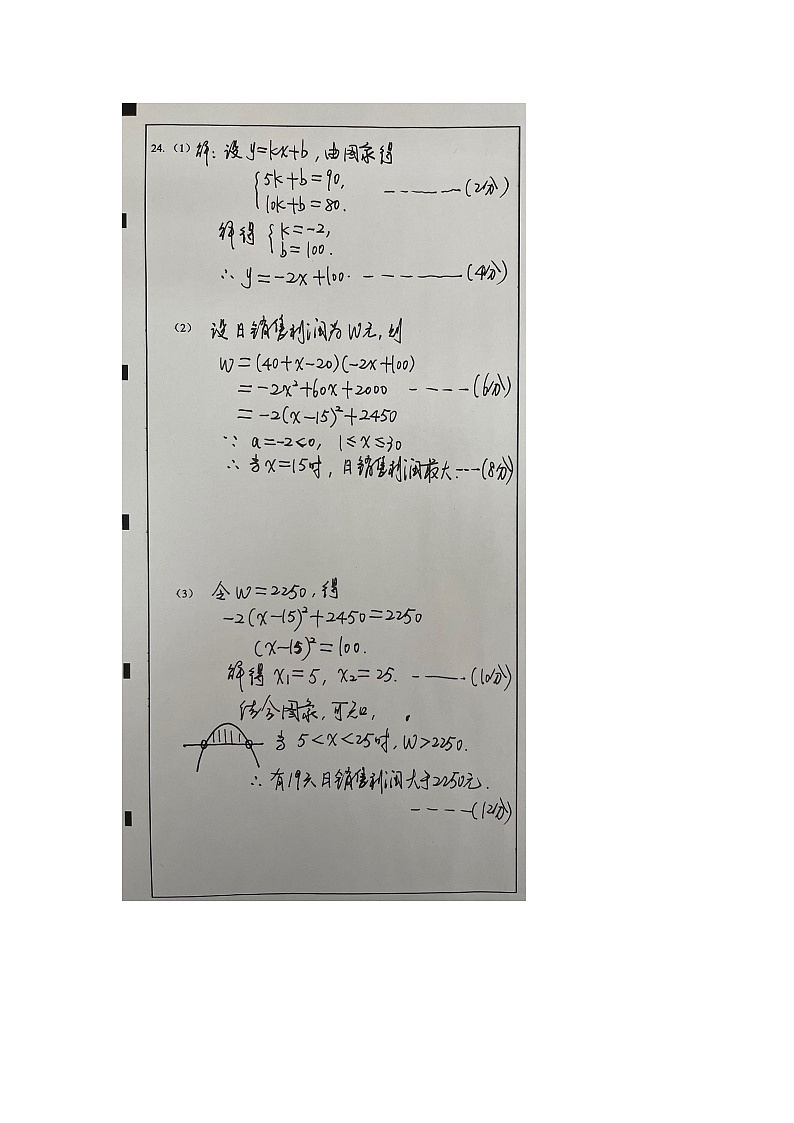 24.(1) 解:设 y=kx+b,由图象得
{5k+b=90, -----(2分)
10k+b=80.
解得 {k=-2,
b=100.
∴ y=-2x+100. -------(4分)
(2) 设日销售利润为W元,则
W=(40+x-20)(-2x+100)
=-2x²+60x+2000 ----(6分)
=-2(x-15)²+2450
∵ a=-2<0, 1≤x≤30
∴ 当x=15时,日销售利润最大.---(8分)
(3) 令W=2250,得
-2(x-15)²+2450=2250
(x-15)²=100.
解得 x₁=5, x₂=25. -----(10分)
结合图象,可知,
当 5<x<25时,W>2250.
∴ 有19天日销售利润大于2250元.
----(12分)